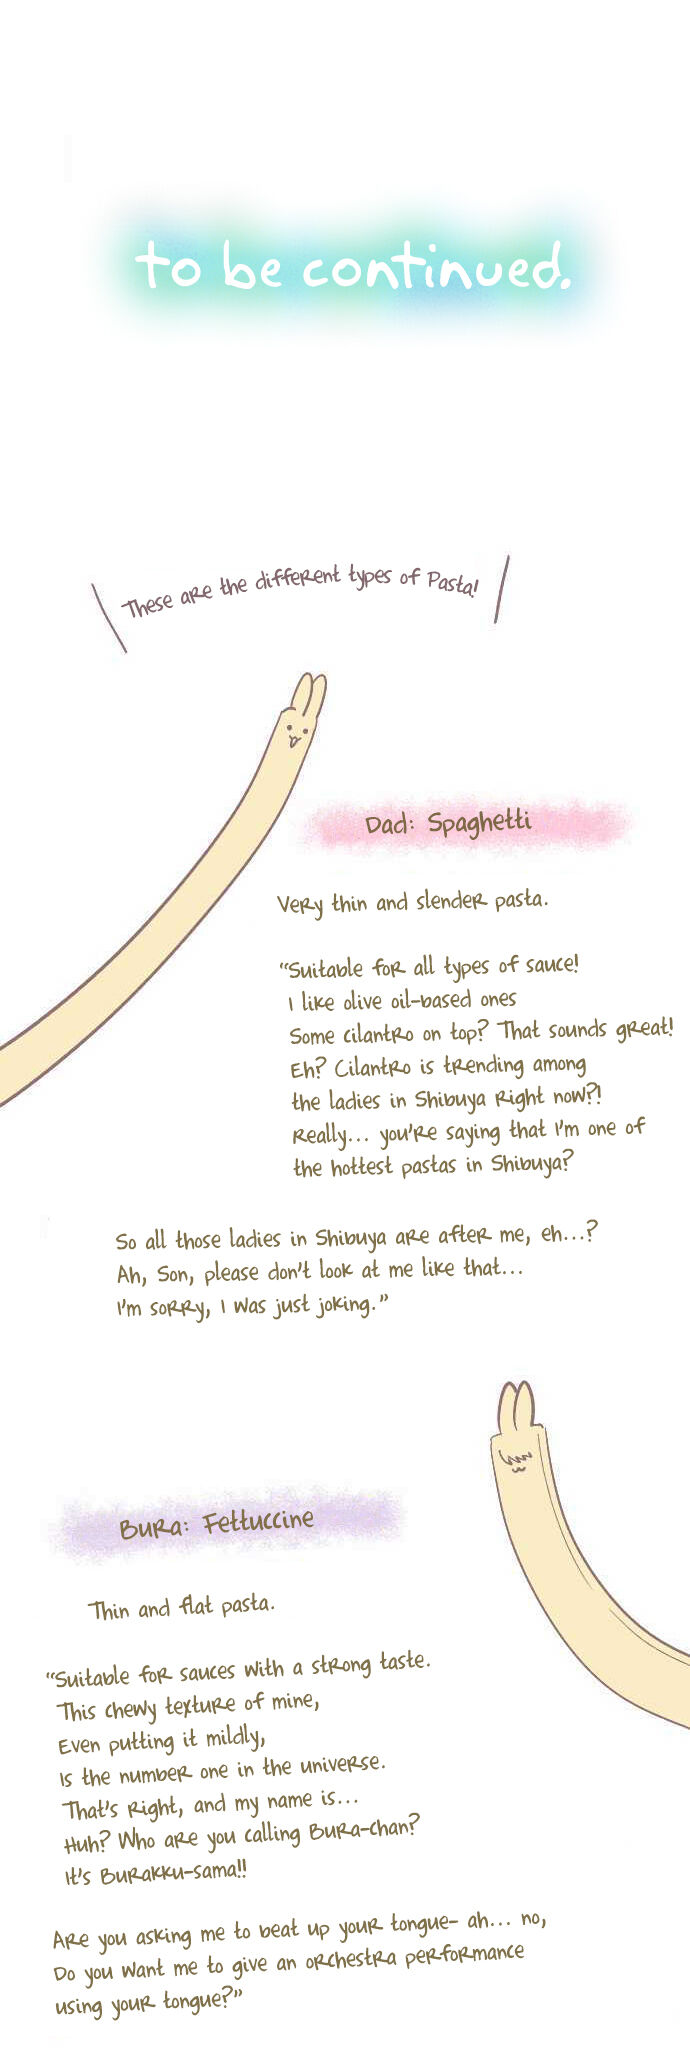 to be continued.
These are the different types of Pasta!
Dad: Spaghetti
Very thin and slender pasta.
"Suitable for all types of sauce!
I like olive oil-based ones
Some cilantro on top? That sounds great!
Eh? Cilantro is trending among
the ladies in Shibuya right now?!
Really... you're saying that I'm one of
the hottest pastas in Shibuya?
So all those ladies in Shibuya are after me, eh...?
Ah, Son, please don't look at me like that...
I'm sorry, I was just joking."
Bura: Fettuccine
Thin and flat pasta.
"Suitable for sauces with a strong taste.
This chewy texture of mine,
Even putting it mildly,
Is the number one in the universe.
That's right, and my name is...
Huh? Who are you calling Bura-chan?
It's Burakku-sama!!
Are you asking me to beat up your tongue- ah... no,
Do you want me to give an orchestra performance
using your tongue?"